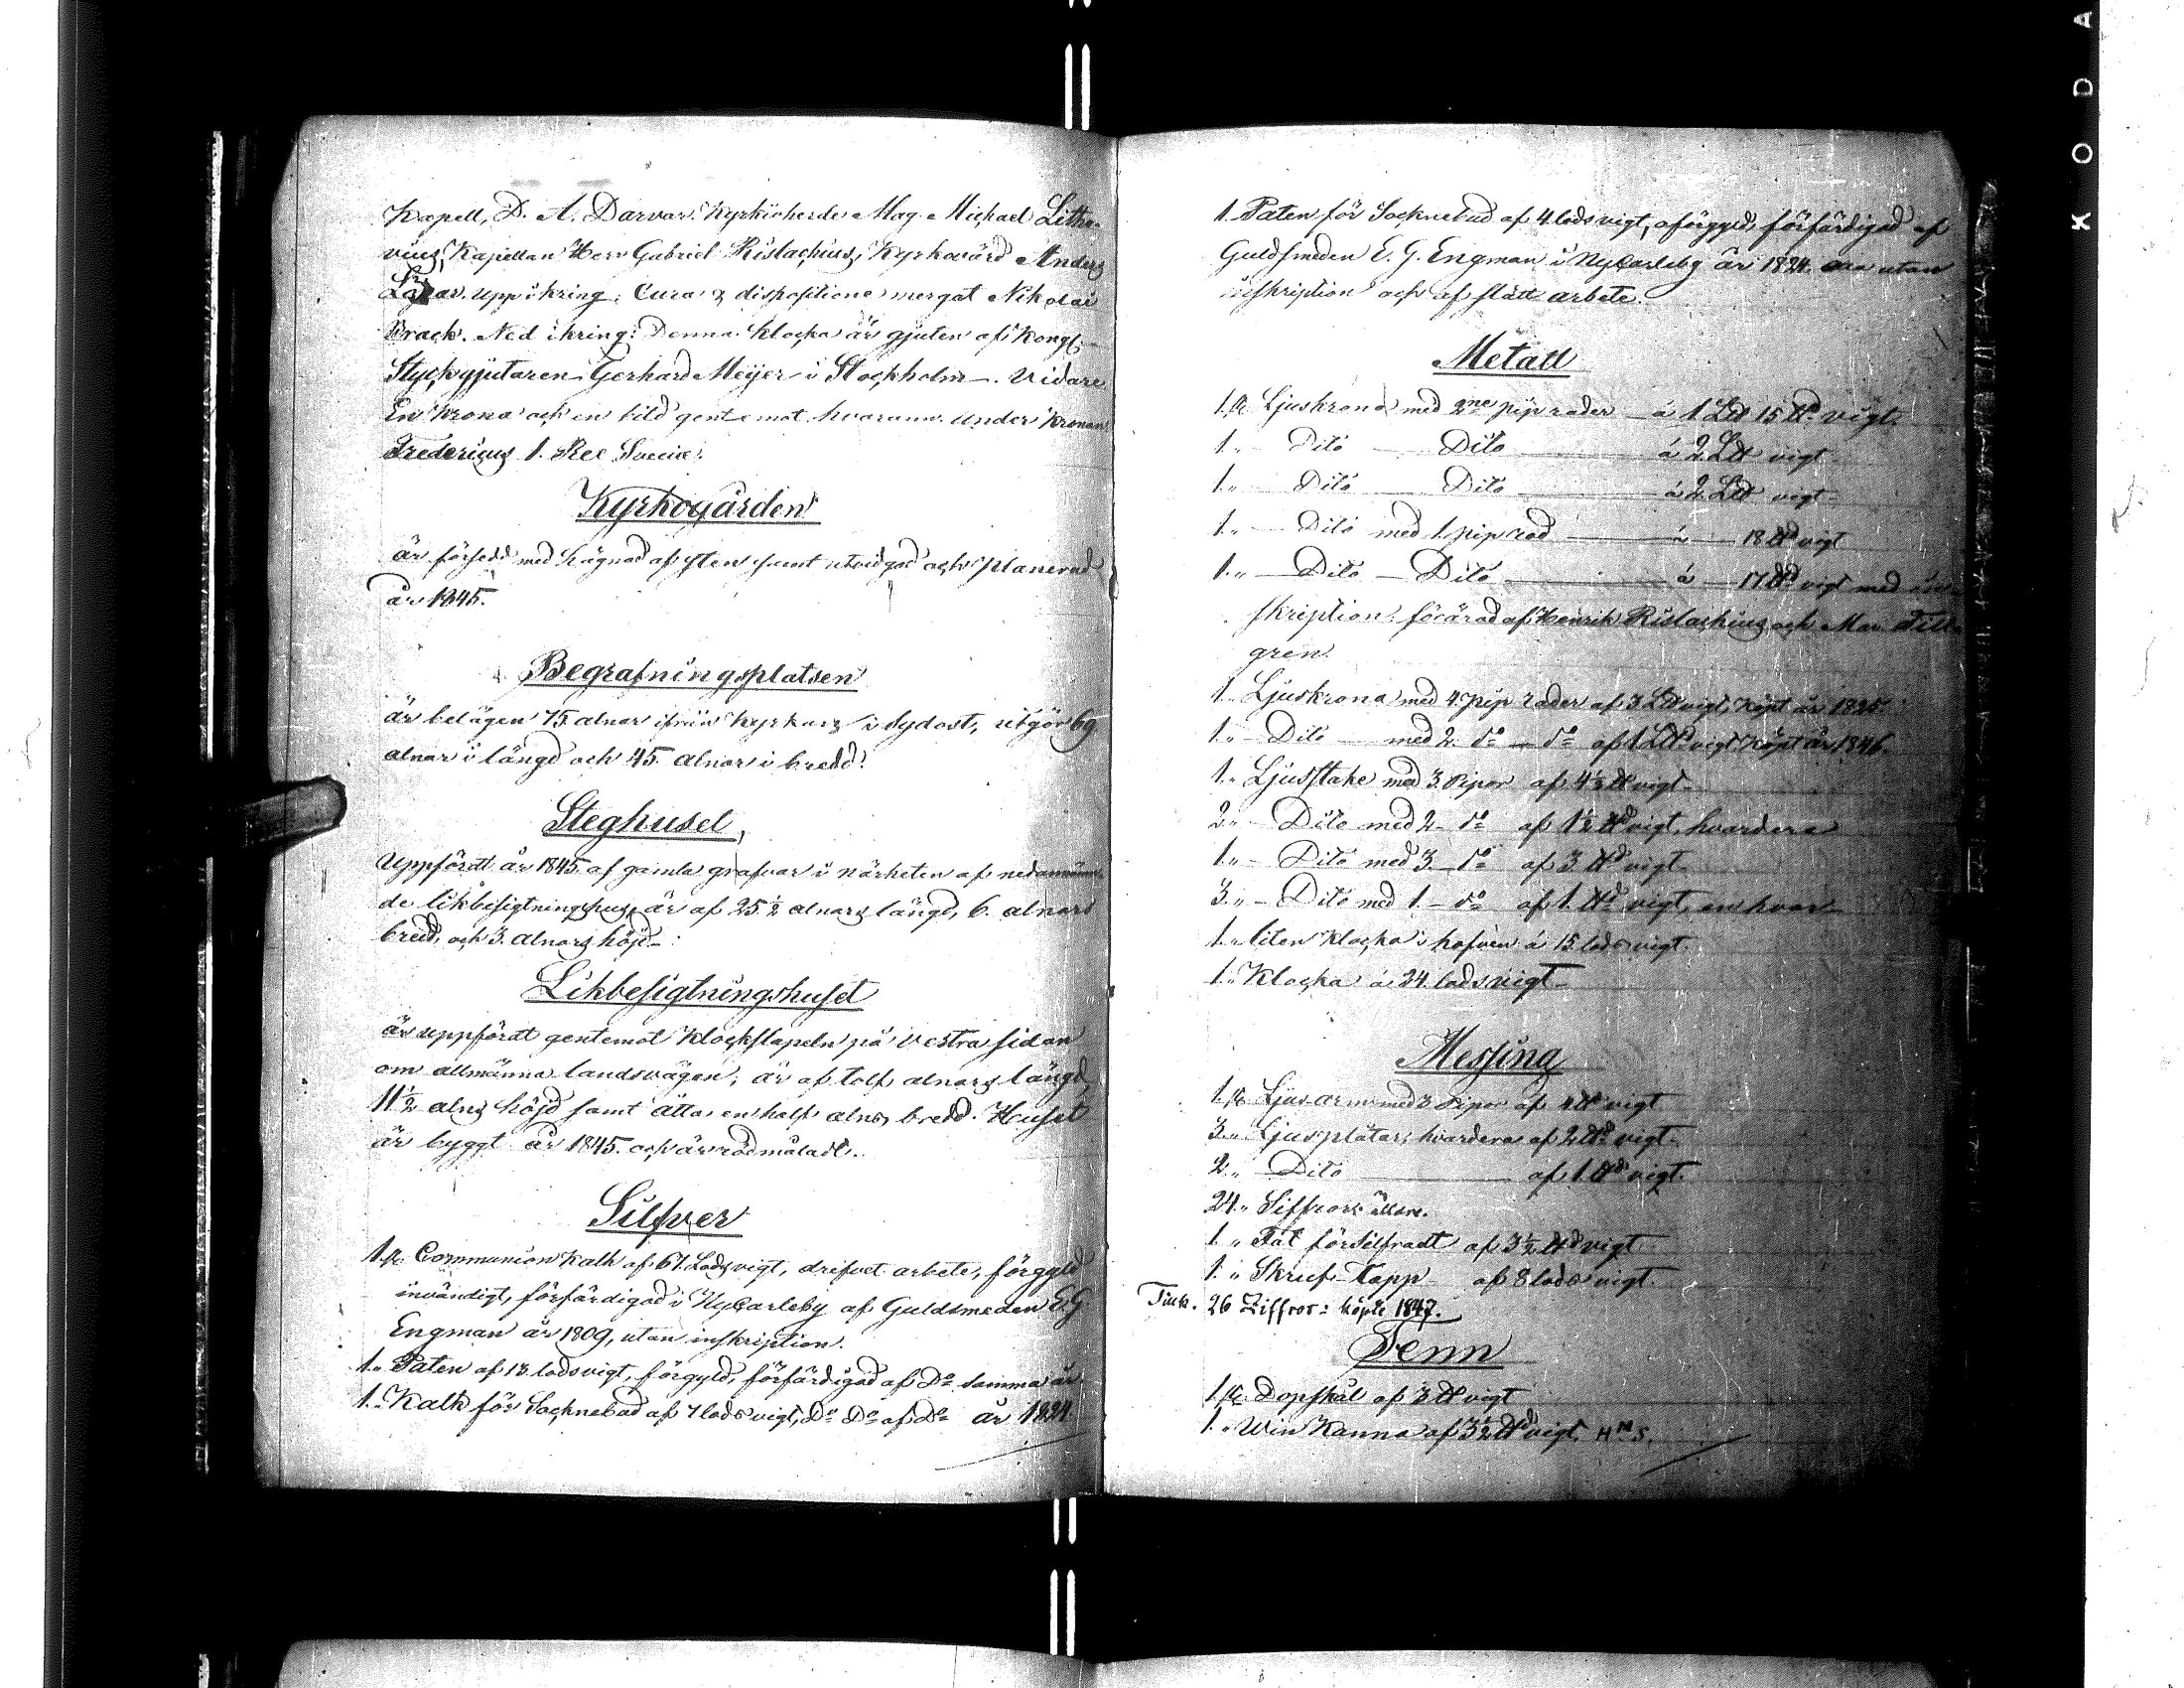 Kapell, D. A. Darvar. Kyrkioherde Mag. Michael Litho-
vius, Kapellan Herr Gabriel Rislachius, Kyrkovärd Anders
upp ikring: Cura & dispositione mergat Nikolai
Brack. Ned ikring: Denna klocka är gjuten af Kongl.
Styckgjutaren Gerhard Meijer i Stockholm —. Vidare
En krona och en bild gent emot hvarann. Under kronan
Fredericus 1. Rex Sueciæ.
Kyrkogården
är försedd med hägnad af sten samt utvidgad och planerad
år 1845.
Begrafningsplatsen
är belägen 75 alnar ifrån kyrkan i sydost, utgör 69
alnar i längd och 45. alnar i bredd.
Steghuset,
Uppfördt år 1845. af gamla grafvar i närheten af nedannämn-
de likbesigtningshus, är af 25 ½ alnars längd, 6. alnars
bredd, och 3. alnars höjd.
Likbesigtningshuset
är uppfördt gentemot Klockstapeln på vestra sidan
om allmänna landsvägen; är af tolf alnars längd,
11 ½ alns höjd samt åtta en half alns bredd. Huset
är byggt år 1845. och är rödmåladt.
Silfver
1. st. Communion Kalk af 61. Lods vigt, drifvet arbete, förgyld
invändigt, förfärdigad i NyCarleby af Guldsmeden E.G
Engman år 1809, utan inskription.
1. „ Paten af 13. lods vigt, förgyld, förfärdigad af Do samma år.
1. „ Kalk för Socknebud af 7 lods vigt, Do Do af Do år 1824
1. Paten för Socknebud af 4. lods vigt, oförgyld, förfärdigad af
Guldsmeden E. G. Engman i NyCarleby år 1824. utan
inskription och af slätt arbete.
Metall
1. st. Ljuskrona med 2ne pip rader — á 1 L℔ 15 ℔. vigt.
1. „ Ditó — Ditó — á 2 L℔ vigt
1. „ Ditó — Ditó — á 2 L℔ vigt
1. „ Ditó med 1. pip rad — á — 18 ℔ vigt
1. „ Ditó — Ditó — á — 17 ℔ vigt med in-
skription: förärad af Henrik Rislachius och Mar.
gren.
1. Ljuskrona med 4. pip rader af 3 L℔ vigt, köpt år 1825.
1. „ Ditó — med 2. do — do af 1 L℔ vigt köpt år 1846.
1. „ Ljusstake med 3. Pipor af 4 ½ ℔ vigt
2. „ Ditó med 2 — do af 1 ½ ℔ vigt, hvardera
1. „ Ditó med 3. — do af 3 ℔ vigt
3. „ Ditó med 1. — do af 1. ℔ vigt, en hvar
1. „ liten klocka i hofven á 15 lods vigt.
1. „ Klocka á 24. lods vigt
Messing
1. st. Ljus arm med 3 Pipor af 4 ℔ vigt
3. „ Ljusplåtar, hvardera af 2 ℔ vigt
2. „ Ditó — af 1 ℔ vigt.
24. „ Siffror: äldre.
1. „ Fat försilfradt af 3 ½ ℔ vigt
1. „ Skruf-Tapp — af 8 lods vigt.
26 Ziffror: köpte 1847.
Tenn
1. st. Dopskål af 3 ℔ vigt
1. „ Win Kanna af 3 ½ ℔ vigt. H M S.
KODA